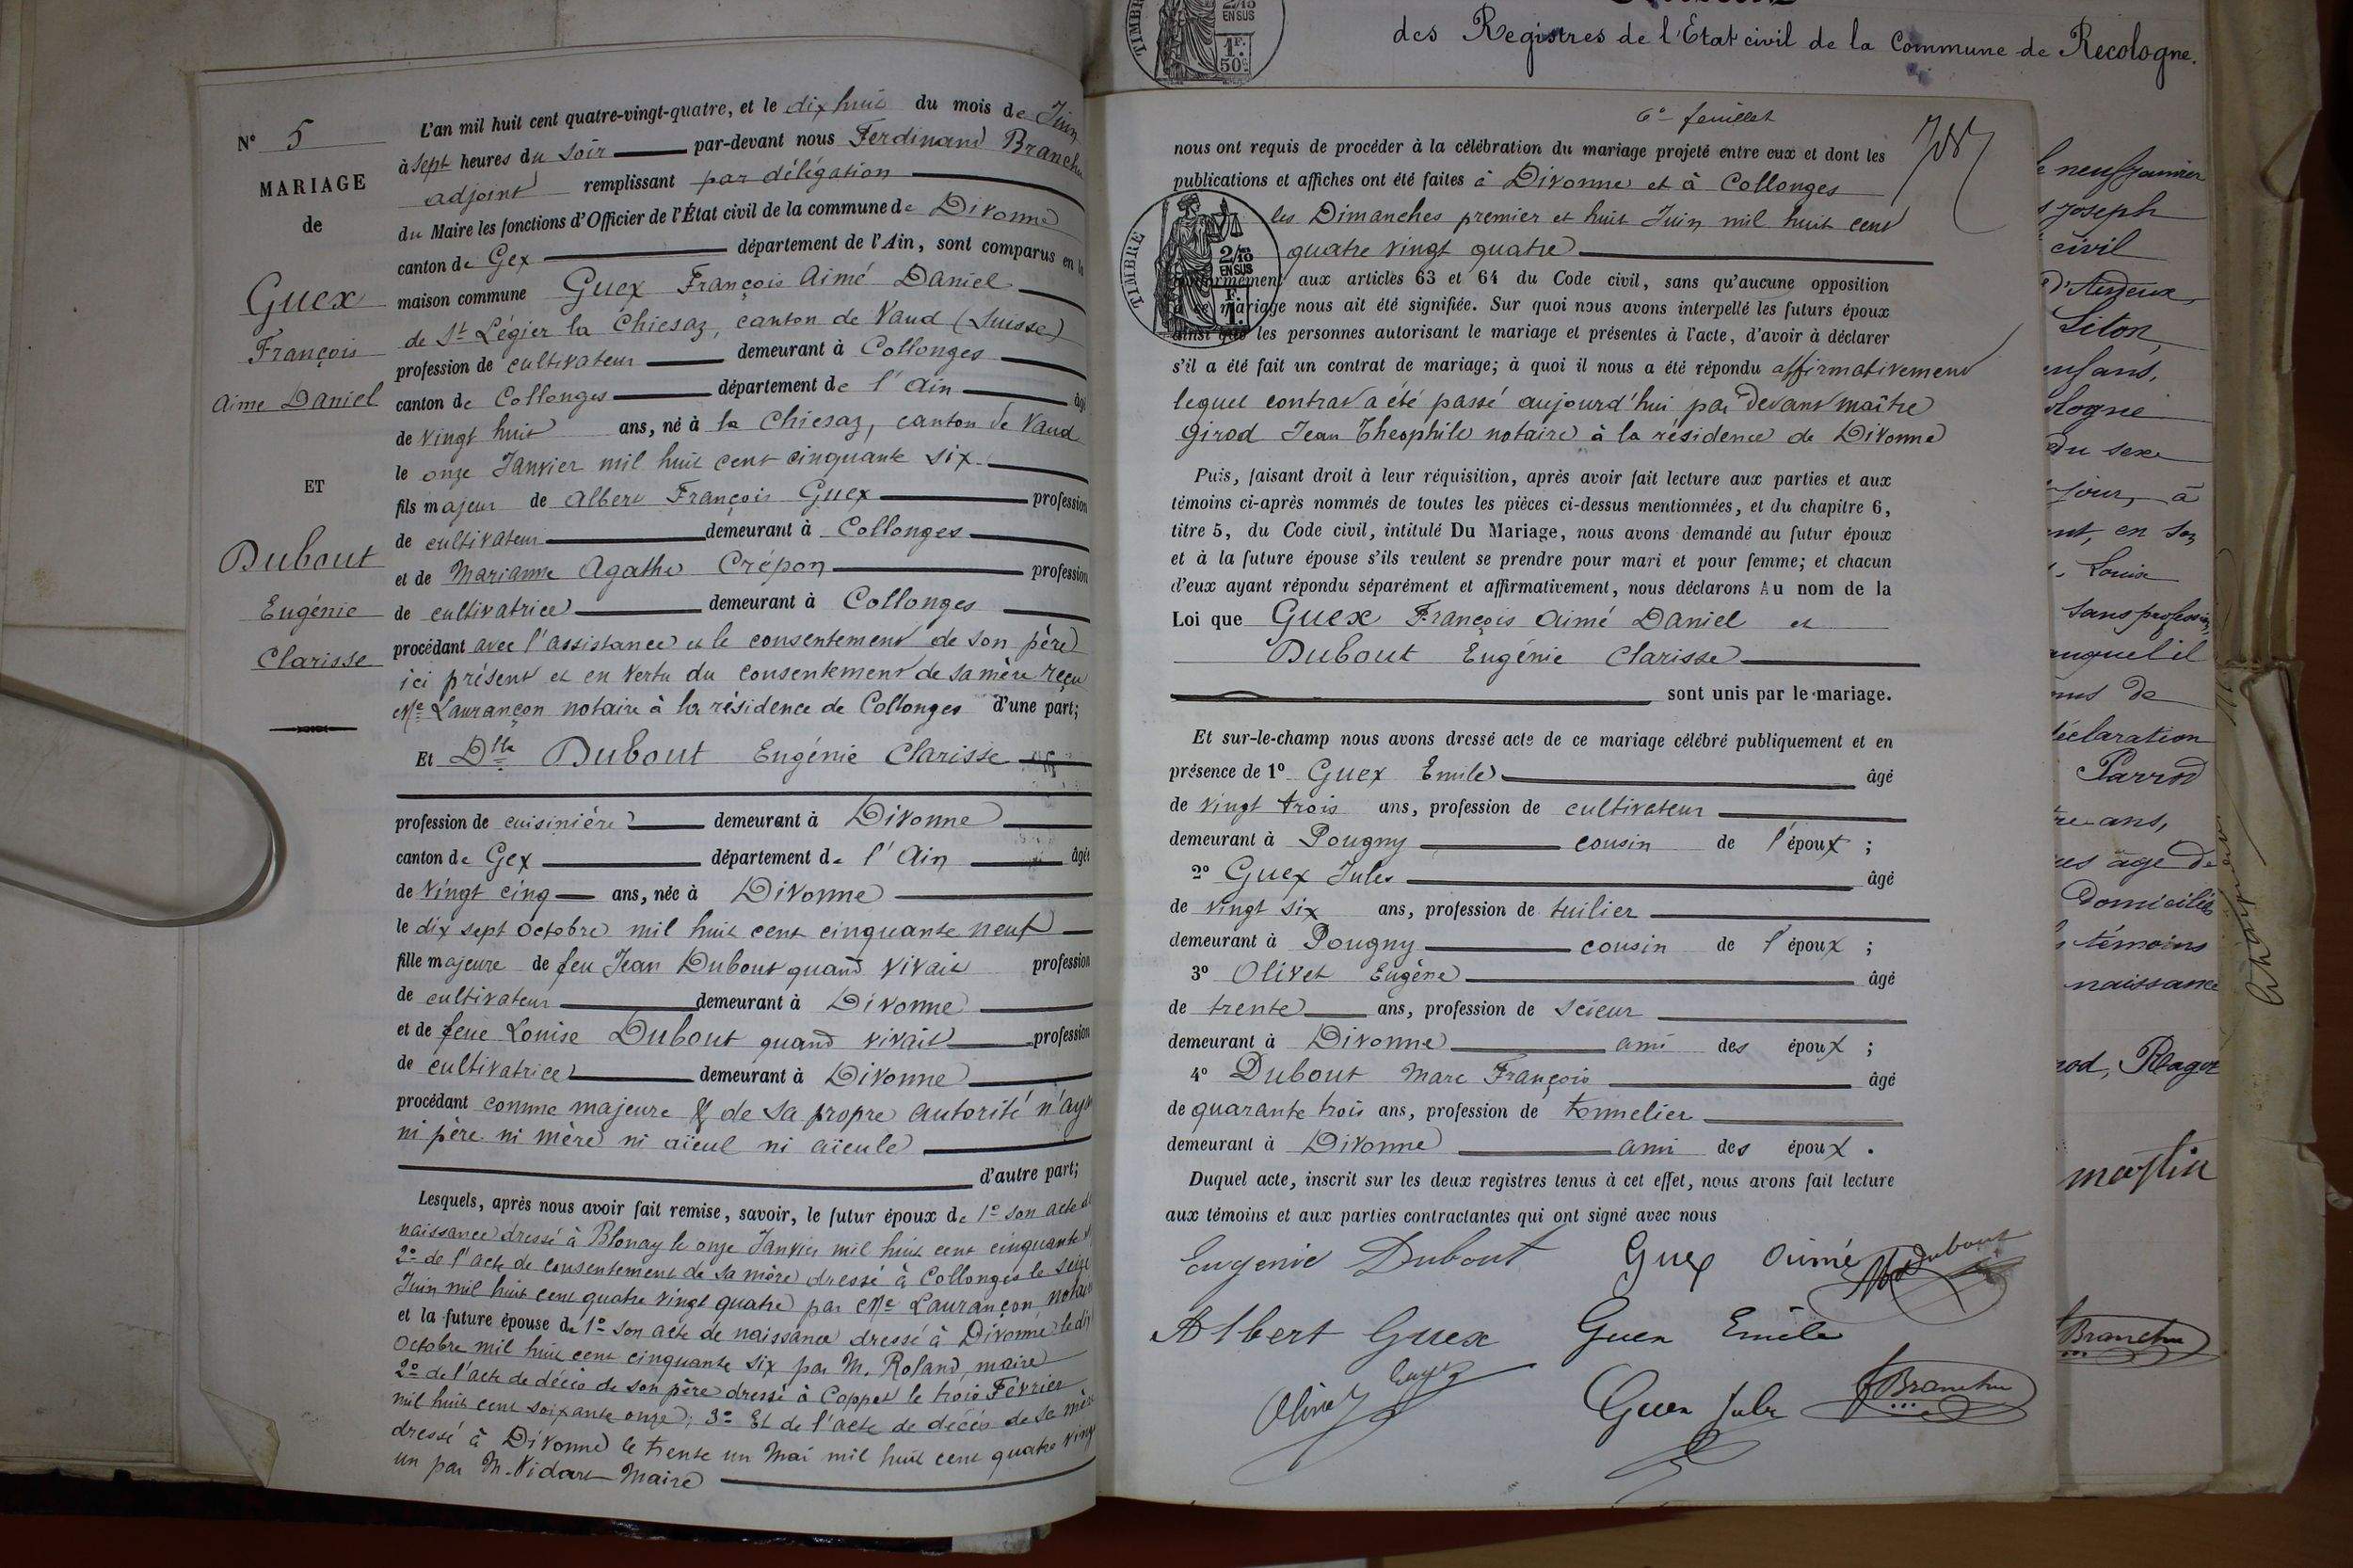 N° 5
MARIAGE
de
Guex
François
Aimé Daniel
ET
Dubout
Eugénie
Clarisse
L'an mil huit cent quatre-vingt-quatre, et le dix huit du mois de Juin
à sept heures du soir par-devant nous Ferdinand Branchu
adjoint remplissant par délégation
du Maire les fonctions d'Officier de l'État civil de la commune de Divonne
canton de Gex département de l'Ain, sont comparus en la
maison commune Guex François Aimé Daniel
de St Légier la Chiesaz, canton de Vaud (Suisse)
profession de cultivateur demeurant à Collonges
canton de Collonges département de l'Ain âgé
de vingt huit ans, né à la Chiesaz, canton de Vaud
le onze Janvier mil huit cent cinquante six
fils majeur de Albert François Guex profession
de cultivateur demeurant à Collonges
et de Marianne Agathe Crépon profession
de cultivatrice demeurant à Collonges
procédant avec l'assistance et le consentement de son père
ici présent et en vertu du consentement de sa mère reçu
Me Laurançon notaire à la résidence de Collonges d'une part;
Et Dlle Dubout Eugénie Clarisse
profession de cuisinière demeurant à Divonne
canton de Gex département de l'Ain âgée
de vingt cinq ans, née à Divonne
le dix sept octobre mil huit cent cinquante neuf
fille majeure de feu Jean Dubout quand vivait profession
de cultivateur demeurant à Divonne
et de feue Louise Dubout quand vivait profession
de cultivatrice demeurant à Divonne
procédant comme majeure & de sa propre autorité n'ay
ni père ni mère ni aïeul ni aïeule
d'autre part;
Lesquels, après nous avoir fait remise, savoir, le futur époux de 1° son acte de
naissance dressé à Blonay le onze Janvier mil huit cent cinquante
2° de l'acte de consentement de sa mère dressé à Collonges le seize
Juin mil huit cent quatre vingt quatre par Me Laurançon notaire
et la future épouse de 1° son acte de naissance dressé à Divonne le dix
Octobre mil huit cent cinquante six par M. Roland, maire
2° de l'acte de décès de son père dressé à Coppet le trois Février
mil huit cent soixante onze; 3° Et de l'acte de décès de sa mère
dressé à Divonne le trente un Mai mil huit cent quatre vingt
un par M. Vidart Maire
des Registres de l'État civil de la Commune de Recologne.
TIMBRE
2/10 EN SUS
1F. 50c
6e feuillet
nous ont requis de procéder à la célébration du mariage projeté entre eux et dont les
publications et affiches ont été faites à Divonne et à Collonges
les Dimanches premier et huit Juin mil huit cent
quatre vingt quatre
TIMBRE
2/10 EN SUS
conformément aux articles 63 et 64 du Code civil, sans qu'aucune opposition
à ce mariage nous ait été signifiée. Sur quoi nous avons interpellé les futurs époux
ainsi que les personnes autorisant le mariage et présentes à l'acte, d'avoir à déclarer
s'il a été fait un contrat de mariage; à quoi il nous a été répondu affirmativement
lequel contrat a été passé aujourd'hui par devant maître
Girod Jean Théophile notaire à la résidence de Divonne
Puis, faisant droit à leur réquisition, après avoir fait lecture aux parties et aux
témoins ci-après nommés de toutes les pièces ci-dessus mentionnées, et du chapitre 6,
titre 5, du Code civil, intitulé Du Mariage, nous avons demandé au futur époux
et à la future épouse s'ils veulent se prendre pour mari et pour femme; et chacun
d'eux ayant répondu séparément et affirmativement, nous déclarons Au nom de la
Loi que Guex François Aimé Daniel et
Dubout Eugénie Clarisse
sont unis par le mariage.
Et sur-le-champ nous avons dressé acte de ce mariage célébré publiquement et en
présence de 1° Guex Emile âgé
de vingt trois ans, profession de cultivateur
demeurant à Pougny cousin de l'époux ;
2° Guex Jules âgé
de vingt six ans, profession de tuilier
demeurant à Pougny cousin de l'époux ;
3° Olivet Eugène âgé
de trente ans, profession de scieur
demeurant à Divonne ami des époux ;
4° Dubout Marc François âgé
de quarante trois ans, profession de tonnelier
demeurant à Divonne ami des époux .
Duquel acte, inscrit sur les deux registres tenus à cet effet, nous avons fait lecture
aux témoins et aux parties contractantes qui ont signé avec nous
Eugénie Dubout Guex Aimé Dubout
Albert Guex Guex Emile
Olivet Eug Guex Jules FBranchu
le neuf Janvier
Joseph
civil
Liton,
enfans,
ologne
du sexe
jour, à
ent, en son
Louise
sans profession,
auquel il
de
déclaration
Parrod
ans,
âgé de
domiciliés
témoins
naissance
rod, Ragot
martin
Branchu